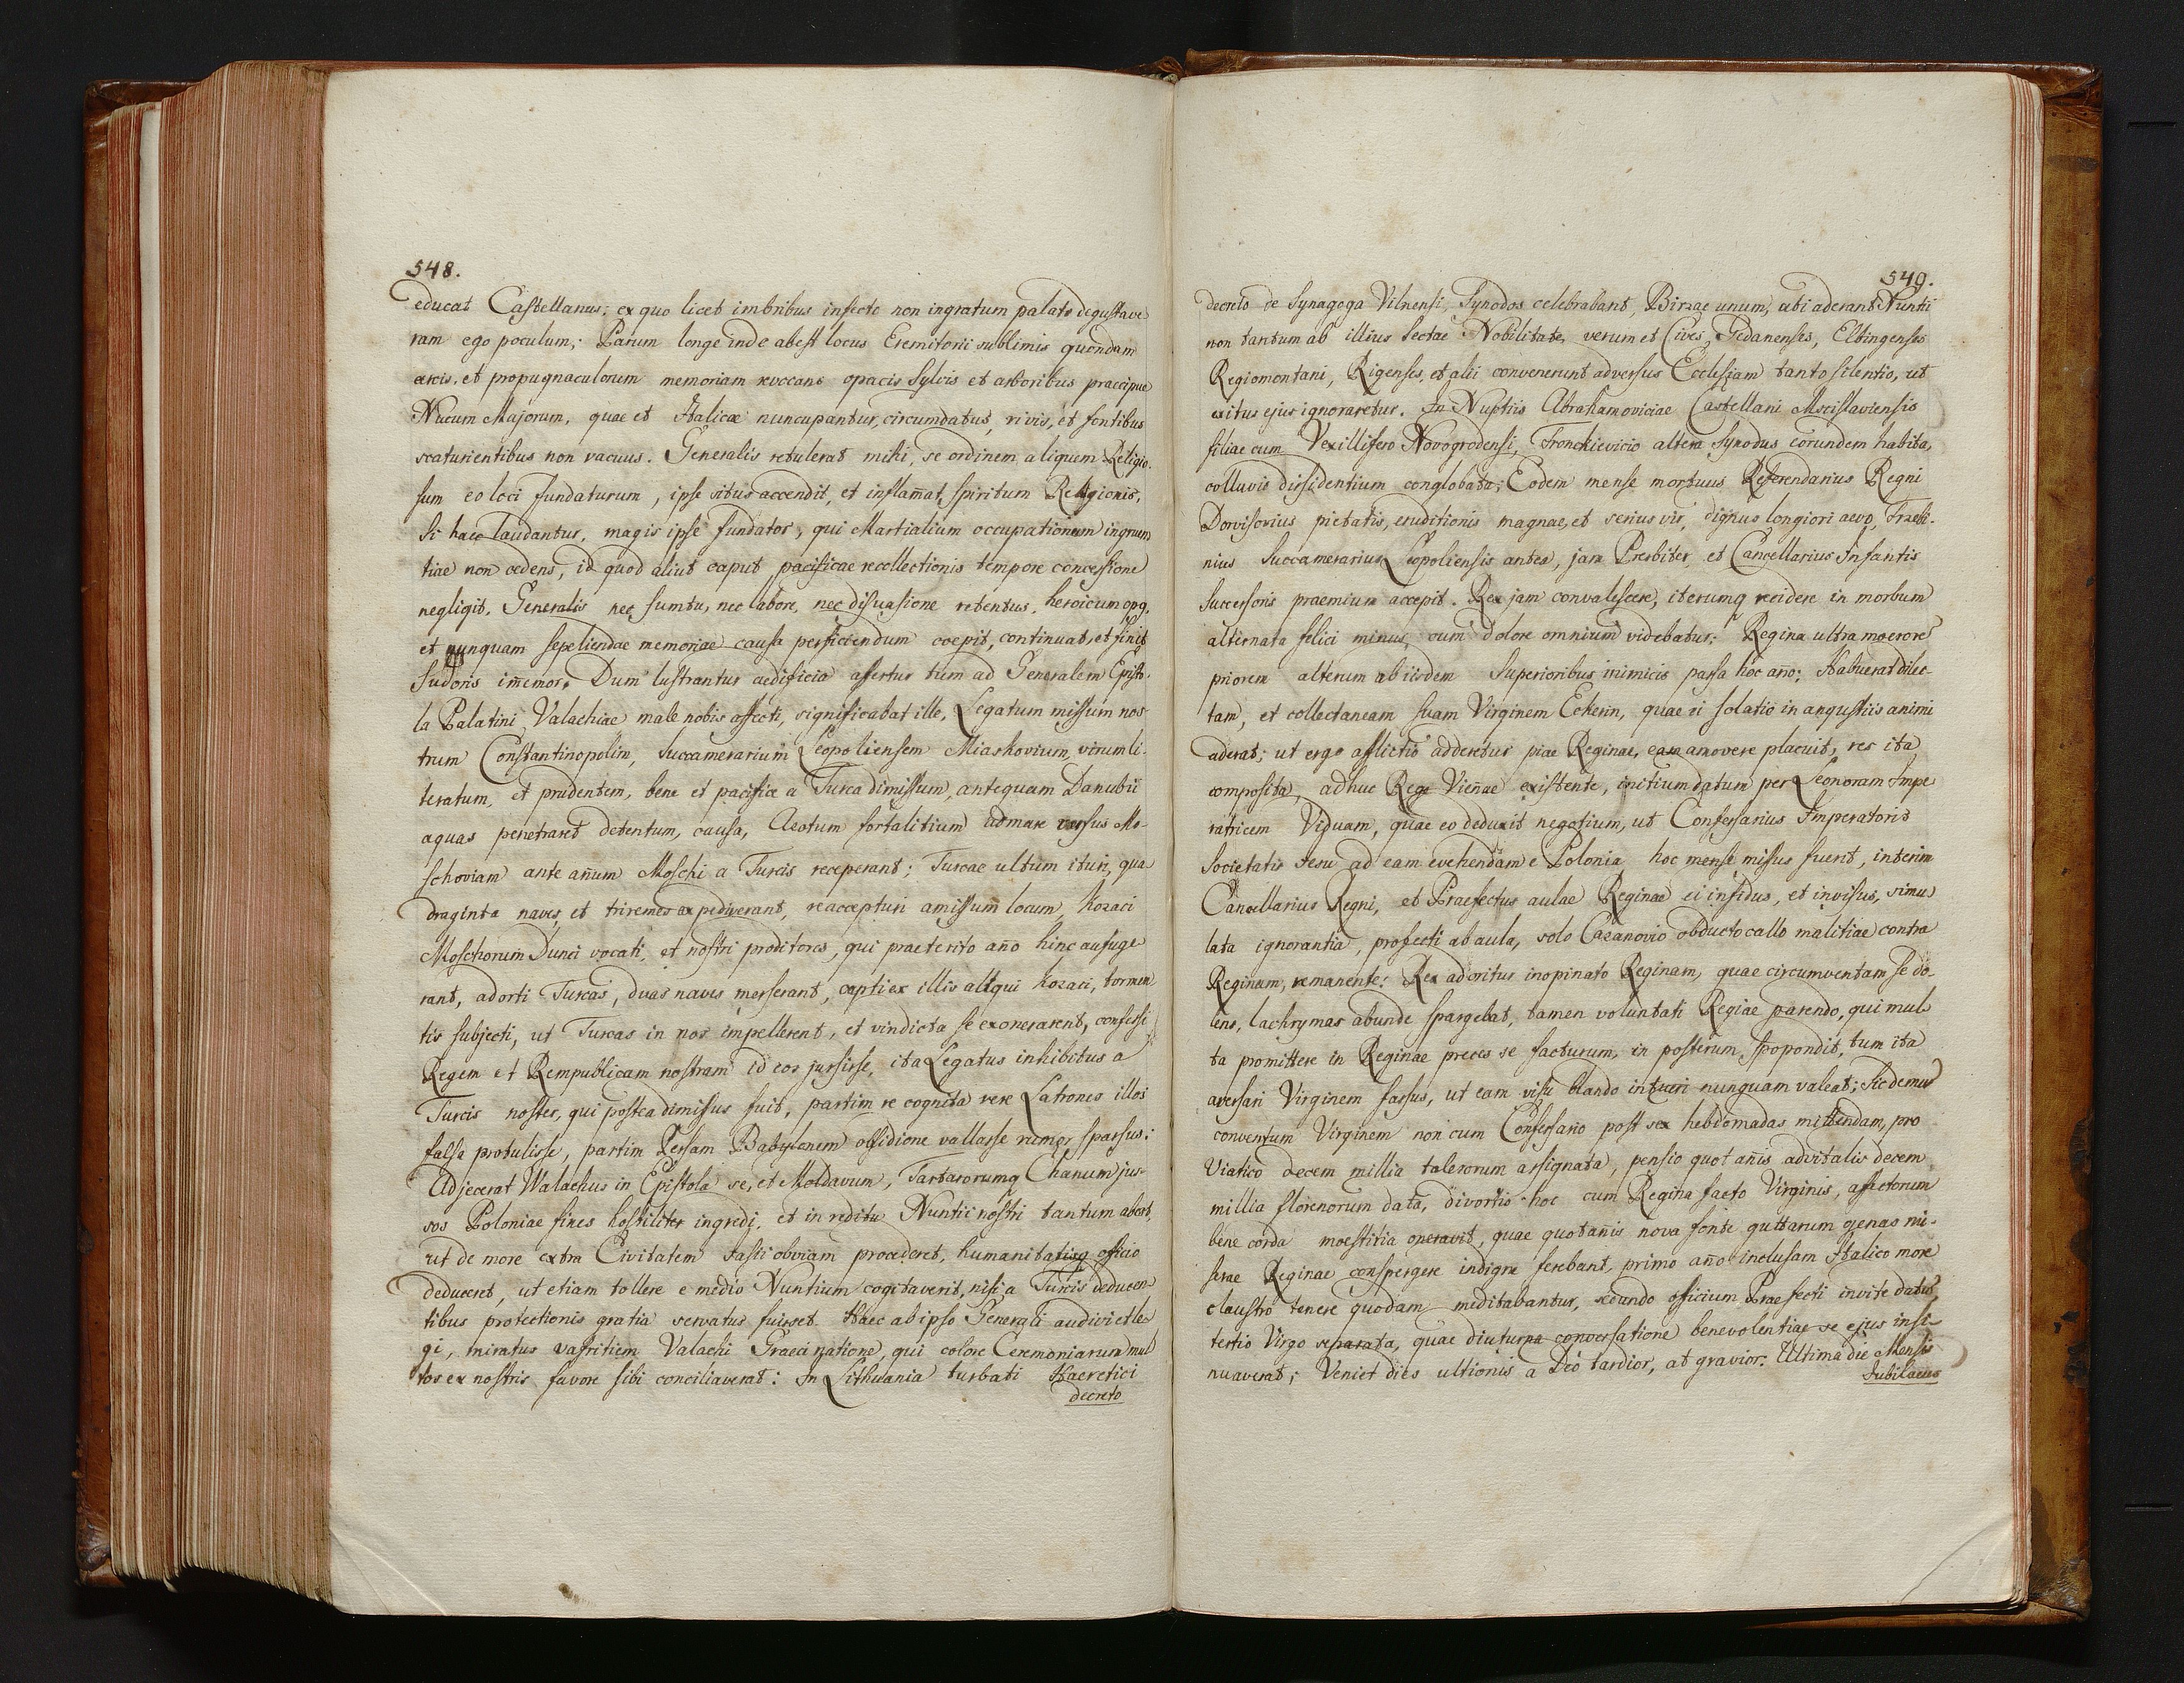 548.
educat Castellanus; ex quo licet imbribus infecto non ingratum palato degustave
ram ego poculum; Parum longe inde abest locus Eremitorii sublimis quondam
arcis, et propugnaculorum memoriam revocans opacis Sylvis et arboribus praecipue
Nucum Majorum, quae et Italicae nuncupantur, circumdatus, rivis, et fontibus
scaturientibus non vacuus. Generalis retulerat mihi, se ordinem aliquem Religio-
sum eo loci fundaturum, ipse situs accendit, et inflam̄at, spiritum Religionis,
Si haec laudantur, magis ipse fundator, qui Martialium occupationum ingruen
tiae non cedens, id quod aliut caput pacificae recollectionis tempore concessione
negligit. Generalis nec sumtu, nec labore, nec disuasione retentus, heroicum opq,
et nunquam sepeliendae memoriae causa perficiendum coepit, continuat, et finit
Sudoris im̄emor. Dum lustrantur aedificia affertur tum ad Generalem Episto-
la Palatini Valachiae male nobis affecti, significabat ille, Legatum missum nos
trum Constantinopolim, Succamerarium Leopoliensem Miaskovium, virum li-
teratum, et prudentem, bene et pacifice a Turca dimissum, antequam Danubii
aquas penetraret detentum, causa, Azotum fortalitium ad mare versus Mo-
schoviam ante an̄um Moschi a Turcis receperant; Turcae ultum ituri, qua
draginta naves et triremes expediverant, reaccepturi amissum locum, Kozaci
Moschorum Dunci vocati, et nostri proditores, qui praeterito an̄o hinc aufuge
rant, adorti Turcas, duas naves merserant, capti ex illis aliqui Kozaci, tormen
tis subjecti, ut Turcas in nos impellerent, et vindicta se exonerarent, confessi
Regem et Rempublicam nostram id eos jussisse, ita Legatus inhibitus a
Turcis noster, qui postea dimissus fuit, partim re cognita vere Latrones illos
falsa protulisse, partim Persam Babylonem obsidione vallasse rumor sparsus:
Adjecerat Walachus in Epistola se, et Moldavum, Tartarorumq Chanum jus-
sos Poloniae fines hostiliter ingredi, et in reditu Nuntii nostri tantum aberat,
ut de more extra Civitatem Jassii obviam procederet, humanitatisq officio
deduceret, ut etiam tollere e medio Nuntium cogitaverit, nisi a Turcis deducen-
tibus protectionis gratia servatus fuisset. Haec ab ipso Generali audivi et le
gi, miratus vafritiem Valachi Graeci natione, qui colore Ceremoniarum mul
tos ex nostris favore sibi conciliaverat: In Lithuania turbati Haeretici
decreto
549.
decreto de Synagoga Vilnensi, Synodos celebrabant, Birzae unum, ubi aderant Nuntii
non tantum ab illius Sectae Nobilitate, verum et Cives, Gedanenses, Elbingenses
Regiomontani, Rigenses, et alii convenerent adversus Ecclesiam tanto silentio, ut
exitus ejus ignoraretur. In Nuptiis Abrahamoviciae Castellani Mscislaviensis
filiae cum Vexillifero Novogrodensi, Fronckievicio altera Synodus eorundem habita,
colluvis dissidentium conglobata; Eodem mense mortuus Referendarius Regni
Dorvisovius pietatis, eruditionis magnae, et serius vir, dignus longiori aevo, Trzebi-
nius Succamerarius Leopoliensis antea, jam Presbiter et Cancellarius Infantis
Successoris praemium accepit. Rex jam convalescere, iterumq recidere in morbum
alternata felici minus, cum dolore omnium videbatur; Regina ultra moerore
priorem alterum ab iisdem Superioribus inimicis passa hoc an̄o; Habuerat dilec-
tam, et collectaneam suam Virginem Eckerin, quae ei solatio in angustiis animi
aderat; ut ergo afflictio adderetur piae Reginae, eam amovere placuit, res ita
composita, adhuc Rege Vien̄ae existente, initium datum per Leonoram Impe
ratricem Viduam, quae eo deduxit negotium, ut Confessarius Imperatoris
Societatis Jesu ad eam evehendam e Polonia hoc mense missus fuerit, interim
Cancellarius Regni, et Praefectus aulae Reginae ei infidus, et invisus, simu
lata ignorantia, profecti ab aula, solo Cazanovio obducto callo malitiae contra
Reginam, remanente. Rex adoritur inopinato Reginam, quae circumventam se do-
lens, lachrymas abunde spargebat, tamen voluntati Regiae parendo, qui mul
ta promittere in Reginae preces se facturum, in posterum, spopondit, tum ita
aversari Virginem fassus, ut eam visu blando intueri nunquam valeat; Sic demū
conventum Virginem non cum Confessario post sex hebdomadas mittendam, pro
Viatico decem millia talerorum assignata, pensio quot an̄is advitalis decem
millia florenorum data, divortio hoc cum Regina facto Virginis, affectorum
bene corda moestitia operavit, quae quotan̄is nova fonte guttarum genas mi-
serae Reginae conspergere indigne ferebant, primo an̄o inclusam Italico more
claustro tenere quodam meditabantur, secundo officium Praefecti invite datū,
tertio Virgo separata, quae diuturna conversatione benevolentiae se ejus insi-
nuaverat; Veniet dies ultionis a Deo tardior, at gravior. Ultima die Mensis
Jubilaeus